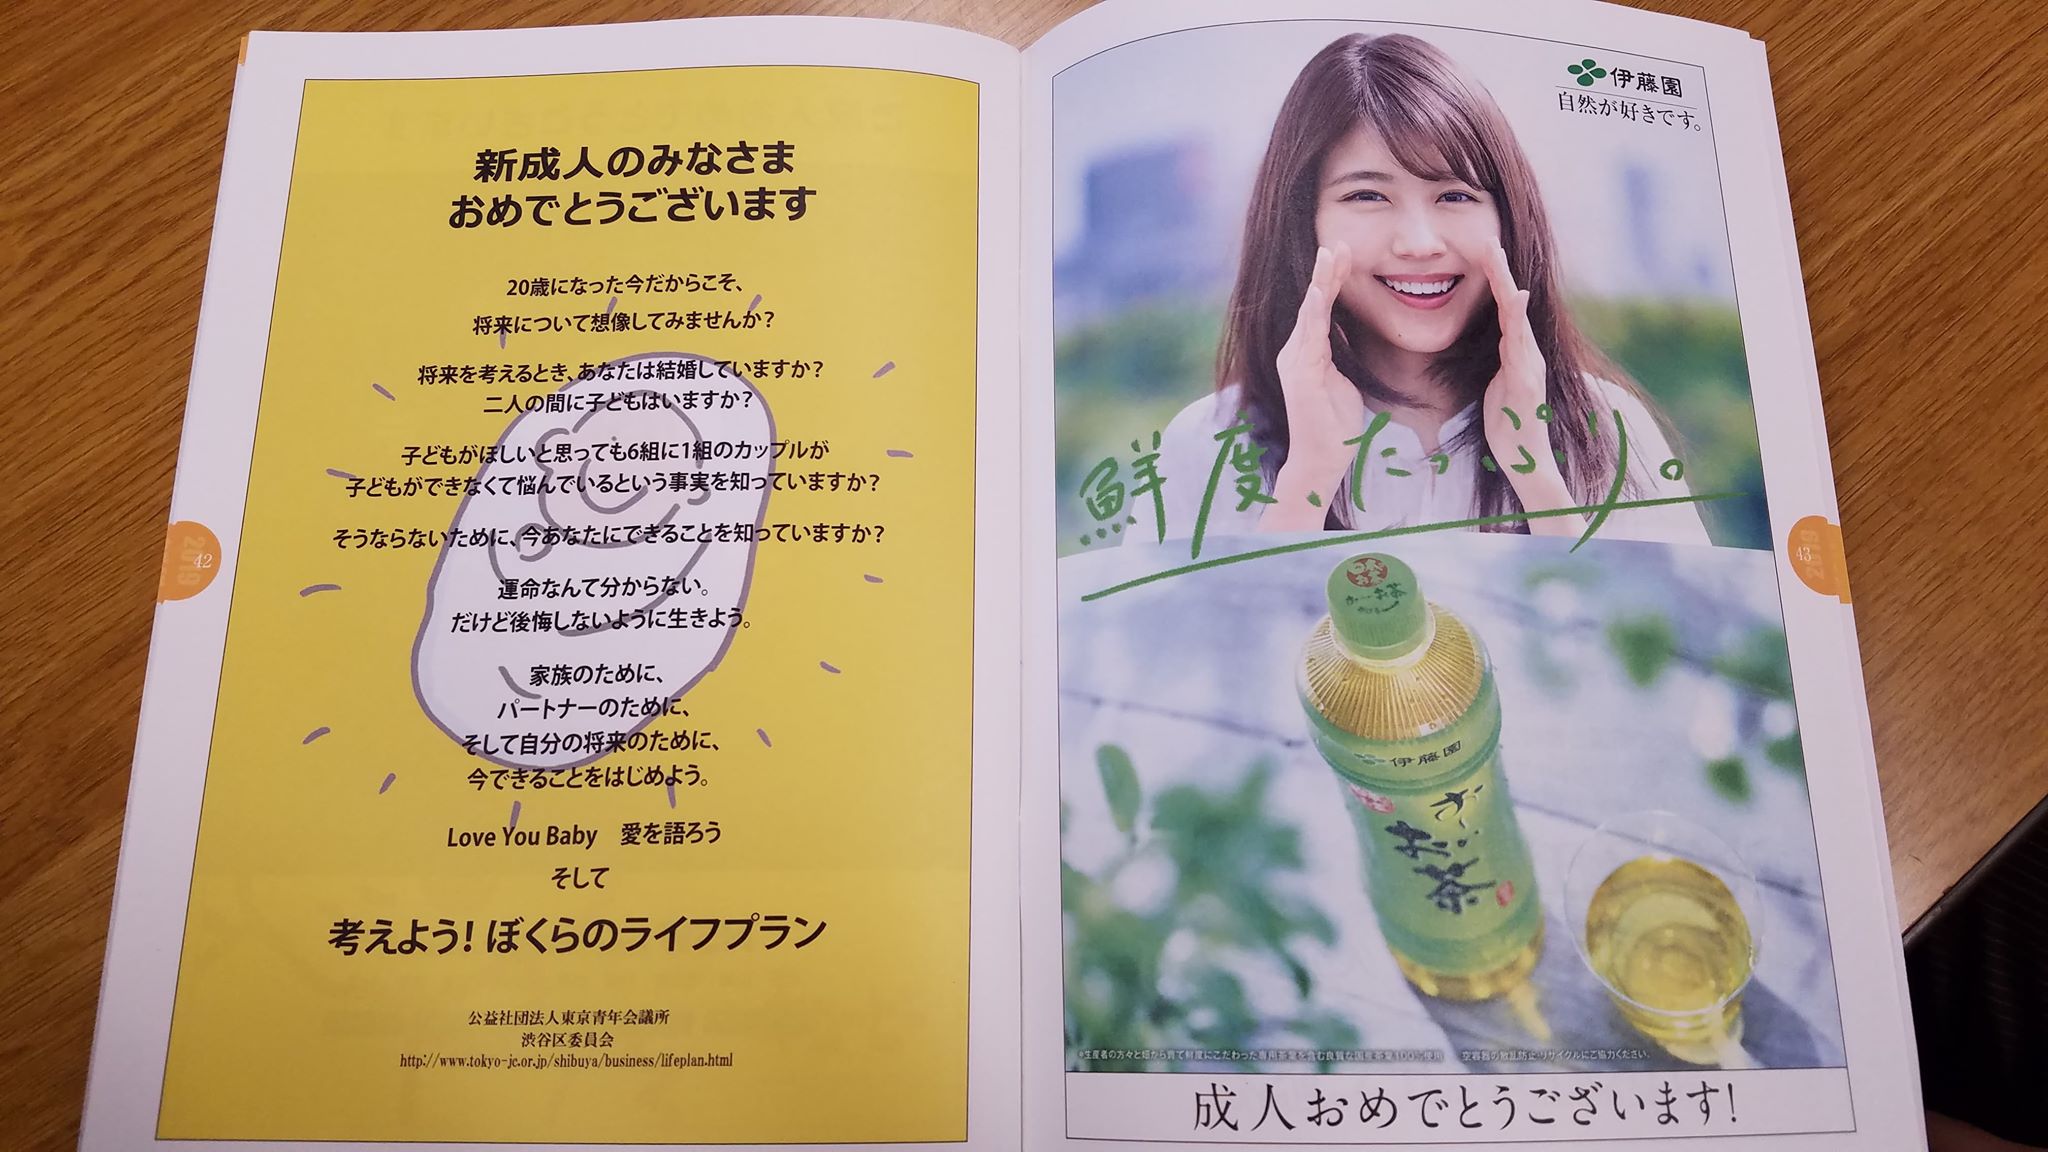 新成人のみなさま
おめでとうございます
20歳になった今だからこそ、
将来について想像してみませんか？
将来を考えるとき、あなたは結婚していますか？
二人の間に子どもはいますか？
子どもがほしいと思っても6組に1組のカップルが
子どもができなくて悩んでいるという事実を知っていますか？
そうならないために、今あなたにできることを知っていますか？
運命なんて分からない。
だけど後悔しないように生きよう。
家族のために、
パートナーのために、
そして自分の将来のために、
今できることをはじめよう。
Love You Baby　愛を語ろう
そして
考えよう！ぼくらのライフプラン
公益社団法人東京青年会議所
渋谷区委員会
http://www.tokyo-jc.or.jp/shibuya/business/lifeplan.html
2019
42
伊藤園
自然が好きです。
鮮度、たっぷり。
伊藤園
お〜いお茶
*生産者の方々と畑から育て鮮度にこだわった専用茶葉を含む良質な国産茶葉100％使用　空容器の散乱防止・リサイクルにご協力ください。
成人おめでとうございます！
43